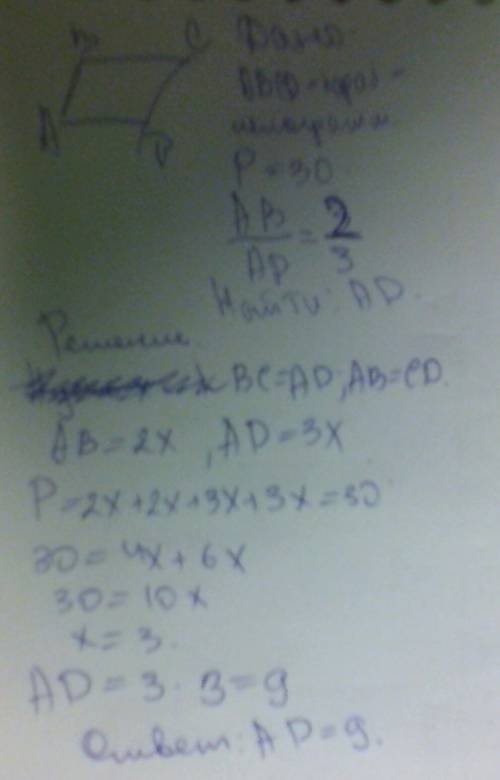 B C
A D
Дано:
ABCD - парал-
лелограмм
P = 30
AB/AD = 2/3
Найти: AD.
Решение
BC=AD, AB=CD.
AB=2x, AD=3x
P=2x+2x+3x+3x=30
30=4x+6x
30=10x
x=3.
AD=3·3=9
Ответ: AD=9.